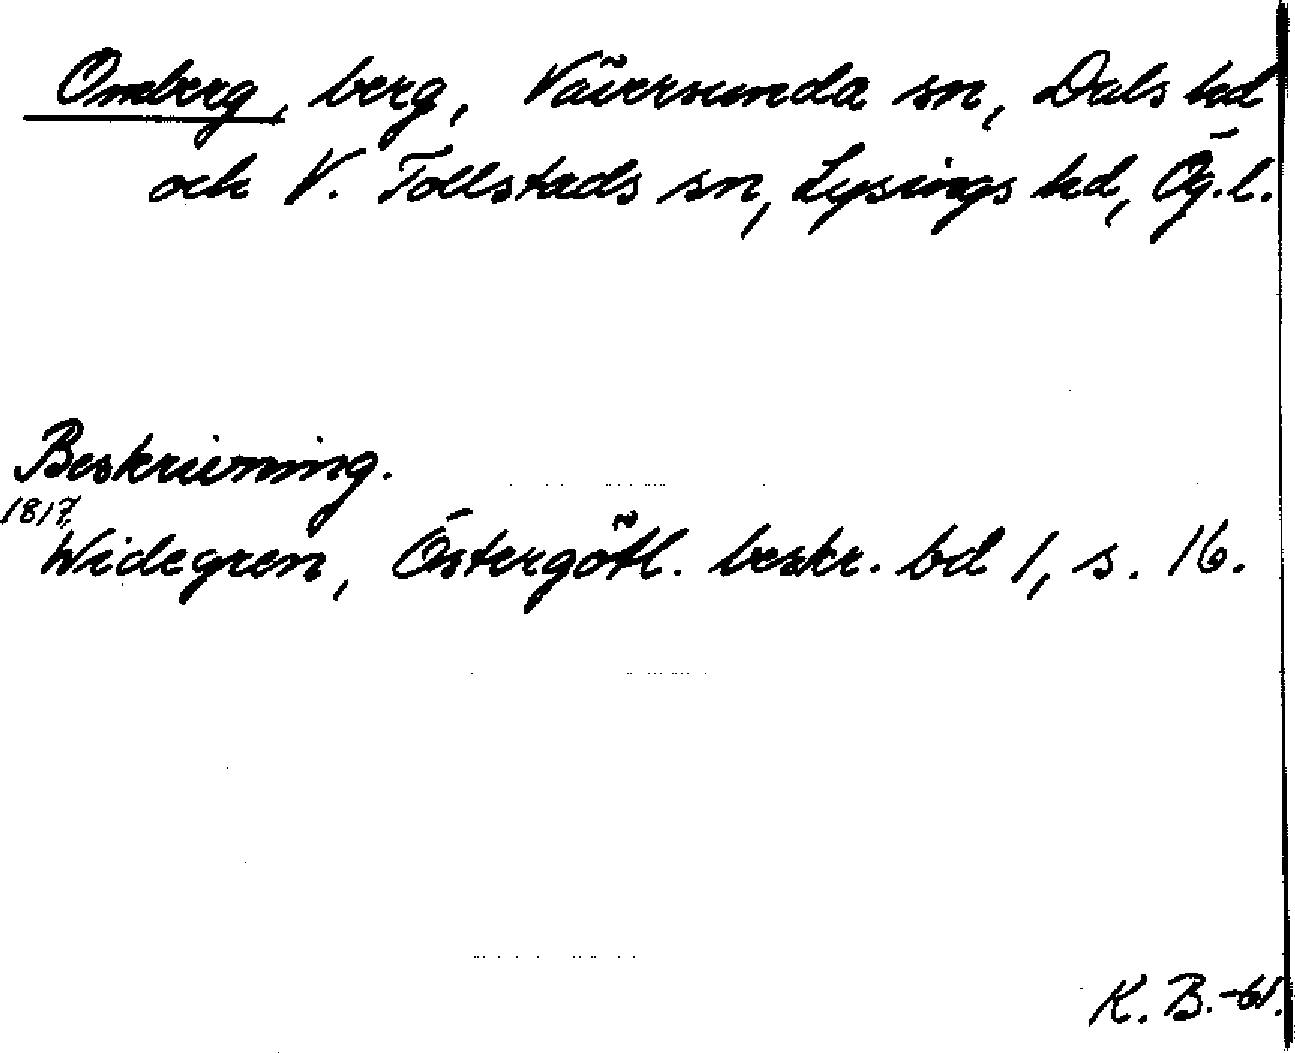 Omberg, berg, Väversunda sn, Dals hd
och V. Tollstads sn, Lysings hd, Ög.l.
Beskrivning.
1817
Widegren, Östergötl. beskr. bd 1, s. 16.
K. B. -61.